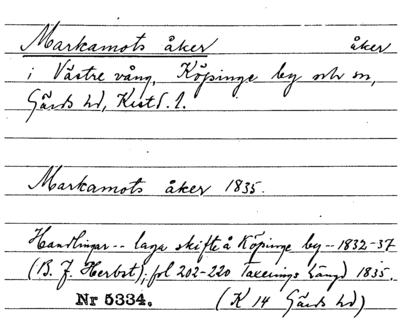 Markamots åker åker
i Västre vång, Köpinge by och sn,
Gärds hd, Krist. l.
Markamots åker 1835.
Handlingar -- laga skifte å Köpinge by -- 1832-37
(B. J. Herbst); fol 202-220 Taxerings Längd 1835.
Nr 5334. (K 14 Gärds hd)